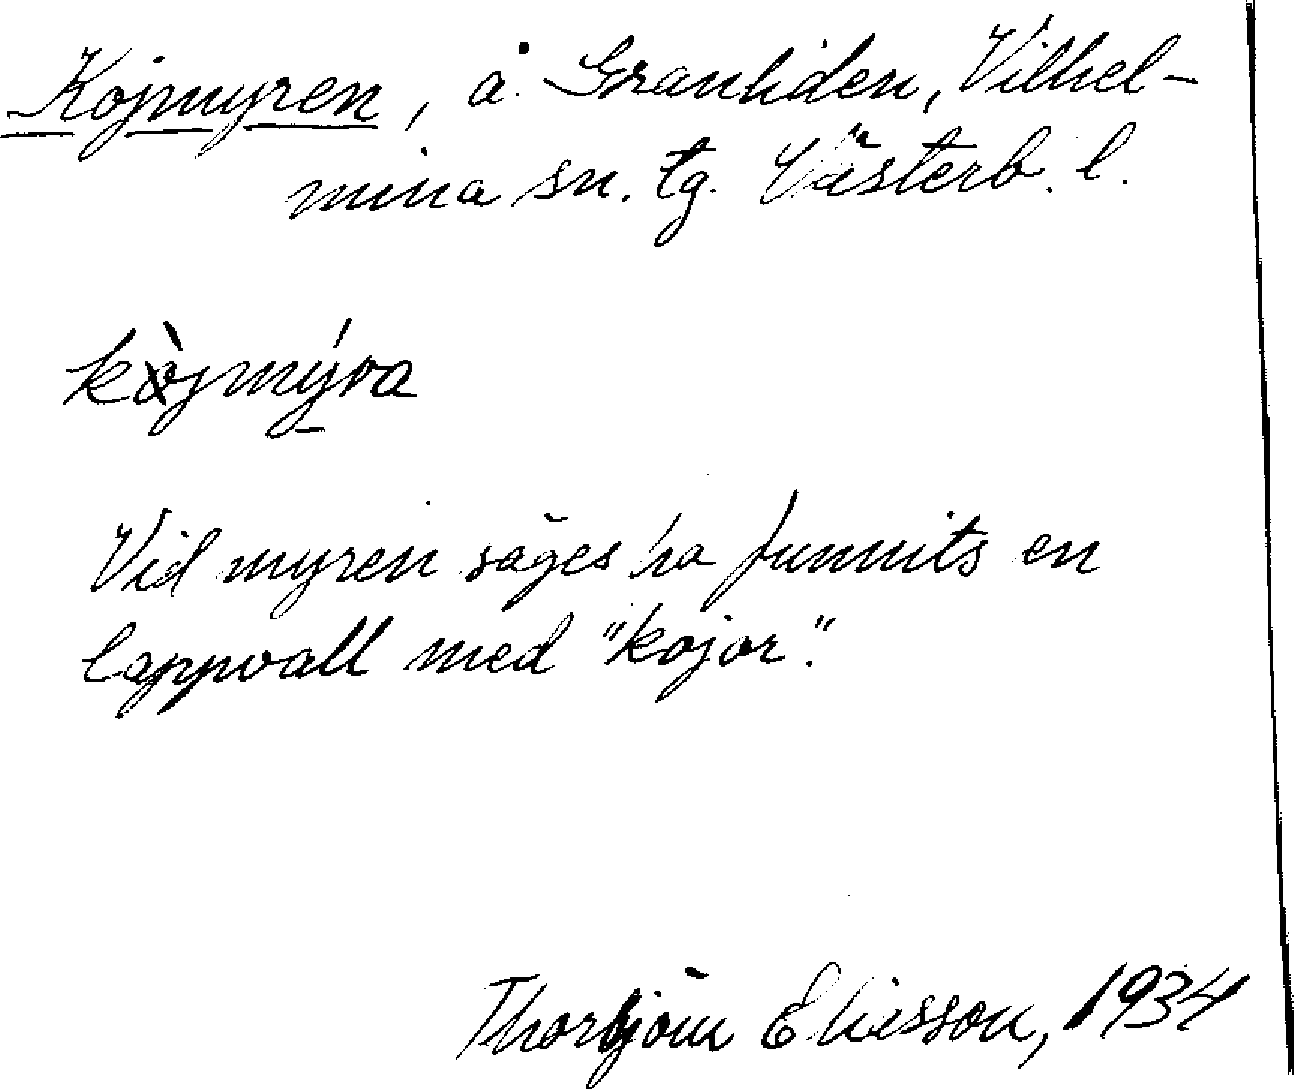 Kojmyren, å. Granliden, Vilhel-
mina sn. tg. Västerb. l.
kòjmýra
Vid myren säges ha funnits en
lappvall med "kojor".
Thorbjörn Elisson, 1934